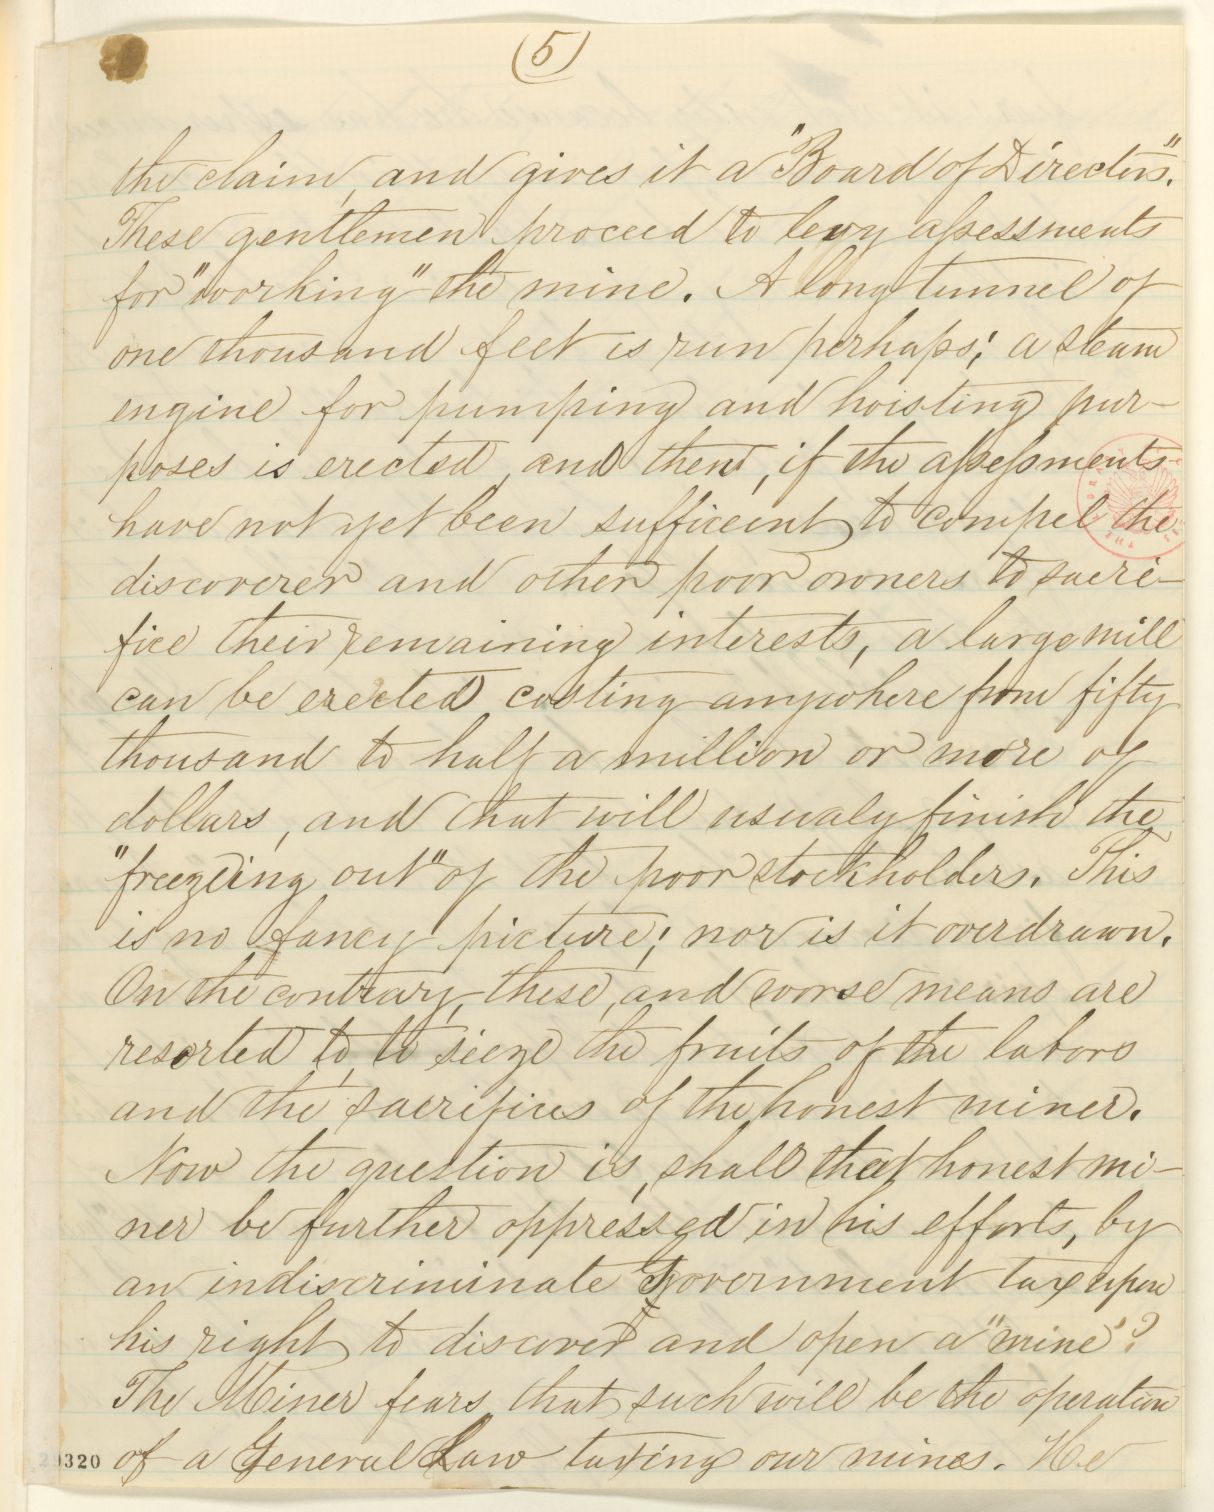 (5)
the claim, and gives it a "Board of Directors".
These gentlemen proceed to levy assessments
for "working" the mine. A long tunnel of
one thousand feet is run perhaps; a steam
engine for pumping and hoisting pur-
poses is erected, and then, if the assessments
have not yet been sufficeint to compel the
discoverer and other poor owners to sacri-
fice their remaining interests, a large mill
can be erected costing anywhere from fifty
thousand to half a million or more of
dollars, and that will usualy finish the
"freezeing out" of the poor stockholders. This
is no fancy picture; nor is it overdrawn.
On the contrary, these, and worse means are
resorted to, to sieze the fruits of the labors
and the sacrifices of the honest miner.
Now the question is, shall that honest mi-
ner be further oppressed in his efforts, by
an indiscriminate Government tax upon
his right to discover and open a "mine"?
The Miner fears that such will be the operation
of a General Law taxing our mines. He
29320